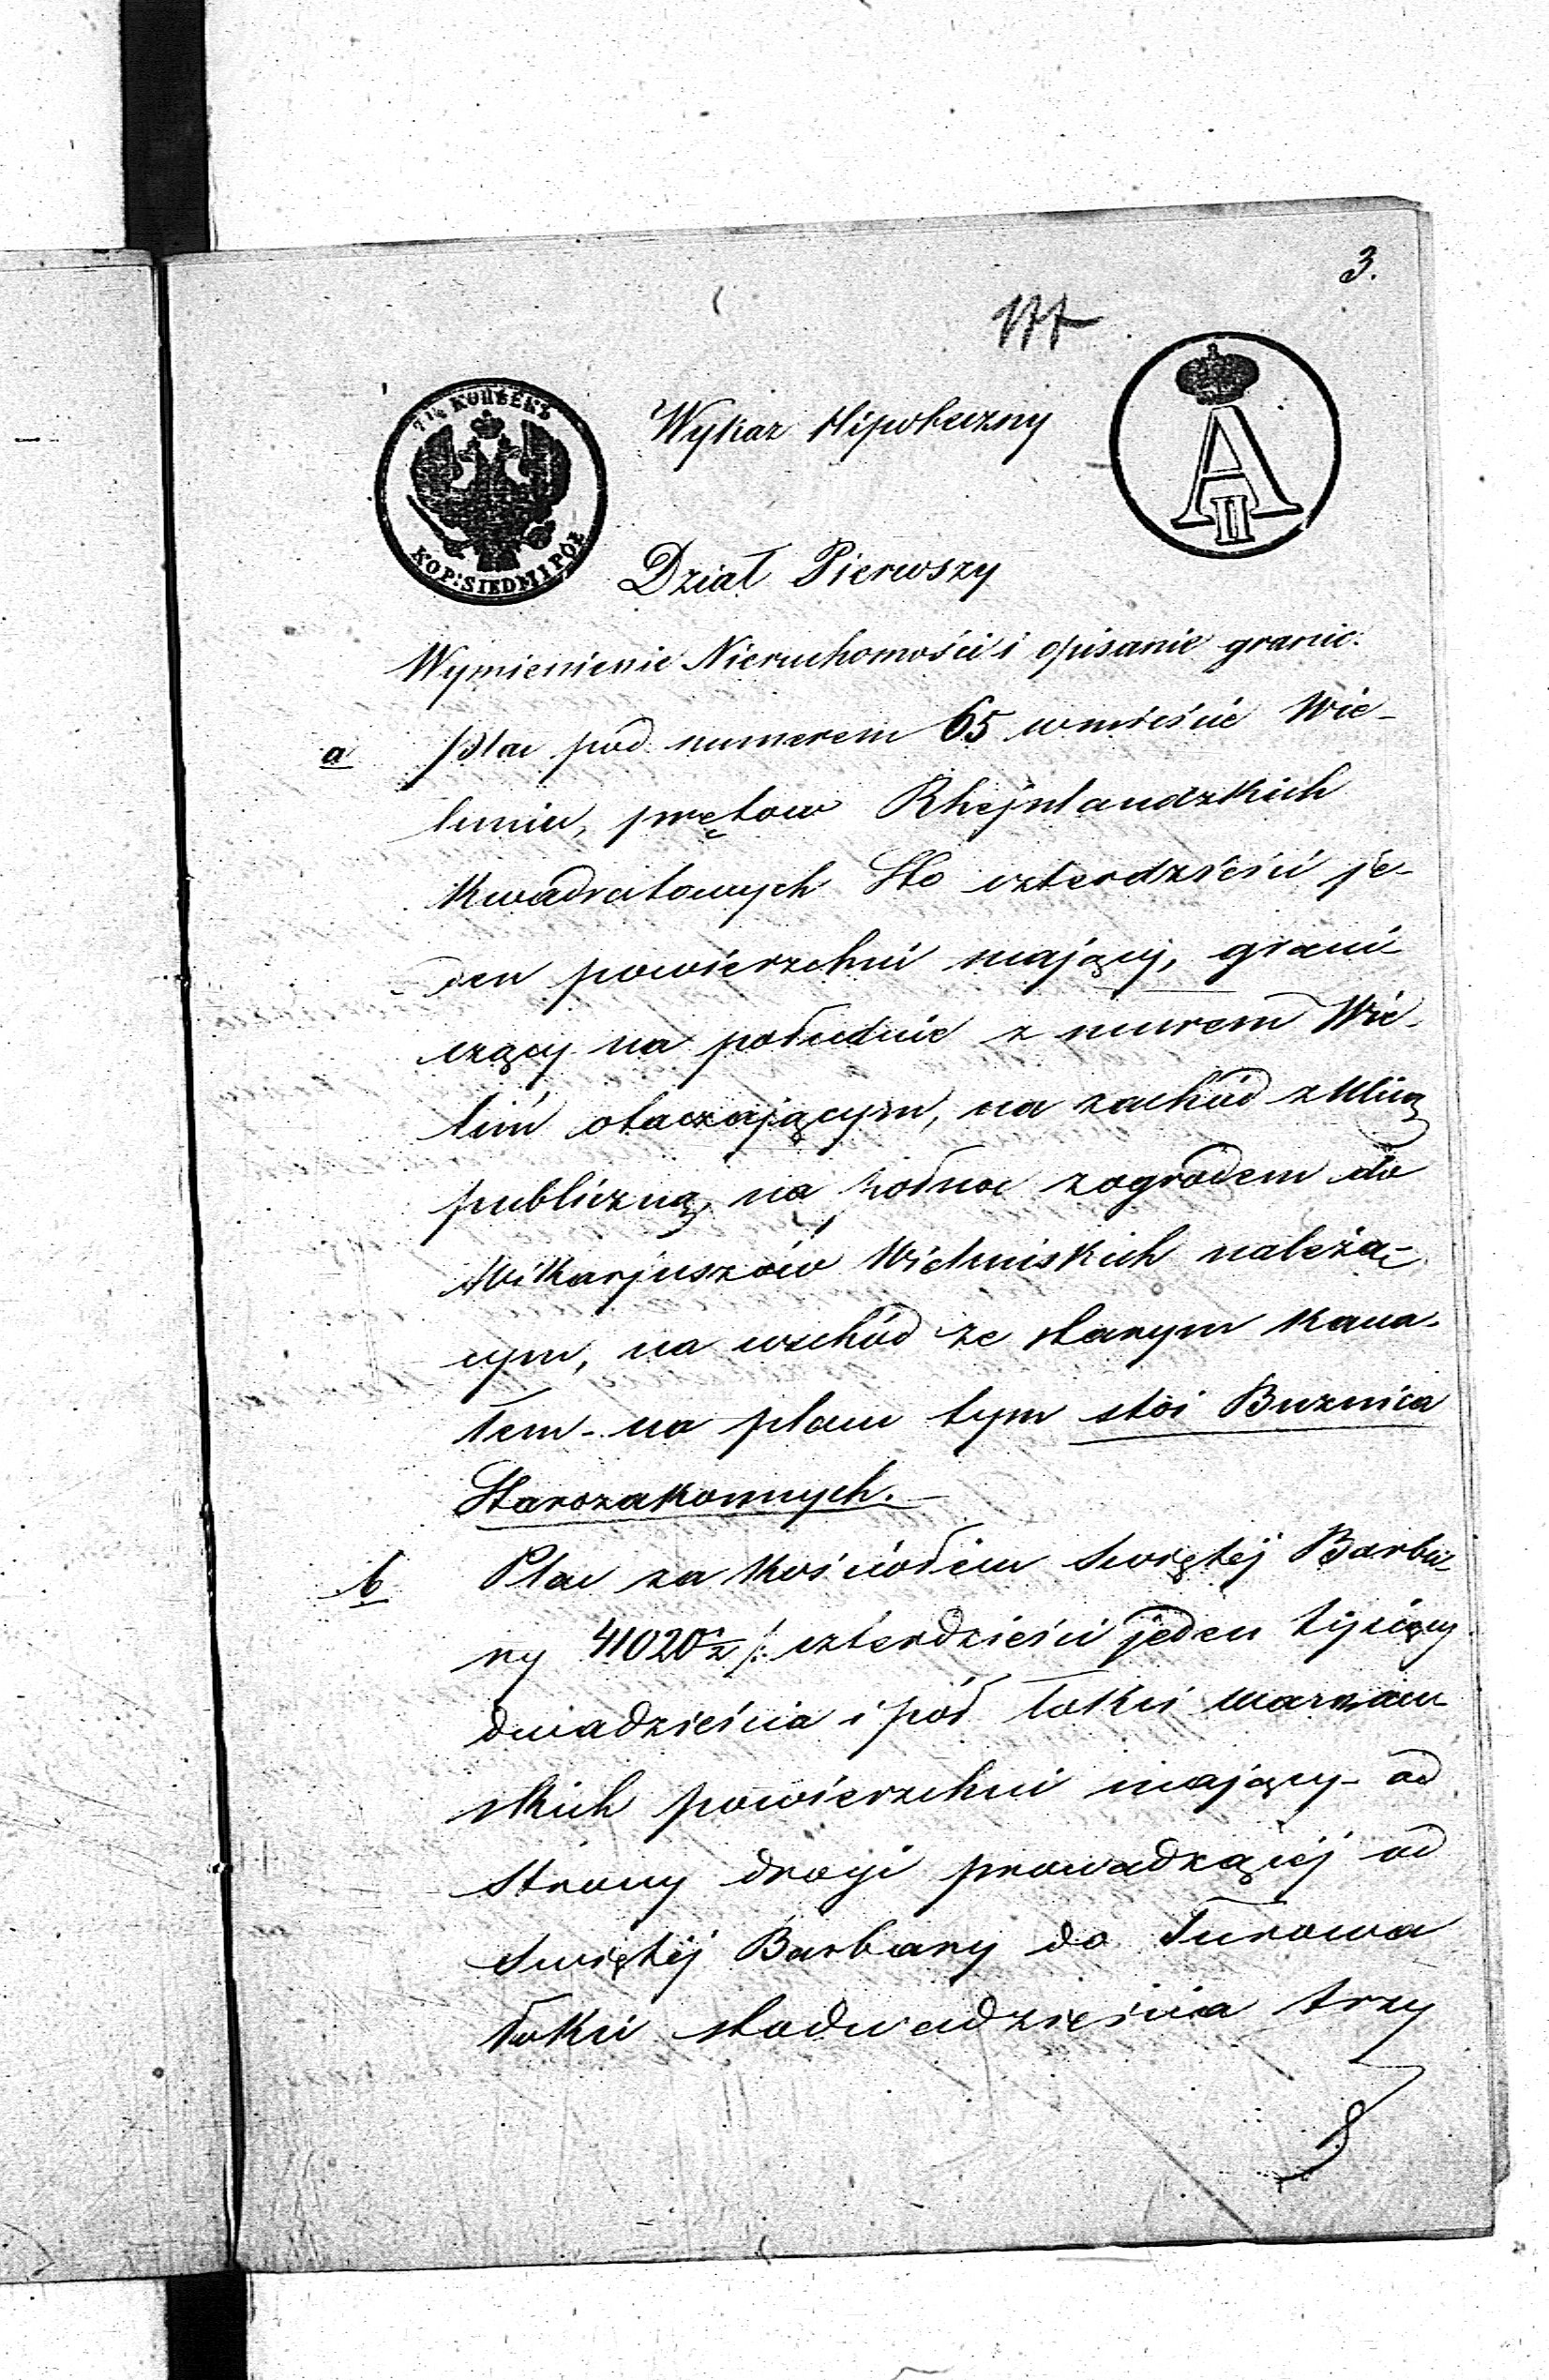 3.
7½ КОПѢЕКЪ
KOP: SIEDM I PÓŁ
A
II
Wykaz Hipoteczny
Dział Pierwszy
Wymienienie Nieruchomości i opisanie granic.
a Plac pod numerem 65 wmieście Wie-
luniu, prętow Rhejnlandzkich
kwadratowych Sto czterdzieści je-
den powierzchni mający, grani
czący na południe z murem Wie-
luń otaczającym, na zachód z ulicą
publiczną, na północ zogrodem do
Wikarjuszów Wieluńskich należą-
cym, na wschód ze starym kana-
łem - na placu tym stoi Buznica
Starozakonnych. -
b Plac za kościołem Swiętéj Barba-
ry 41020½ /: czterdzieści jeden tysięcy
dwadzieścia i pół łokci warszaw
skich powierzchni mający - od
strony drogi prowadzącéj od
Swiętéj Barbary do Turowa
łokci stodwadzieścia trzy